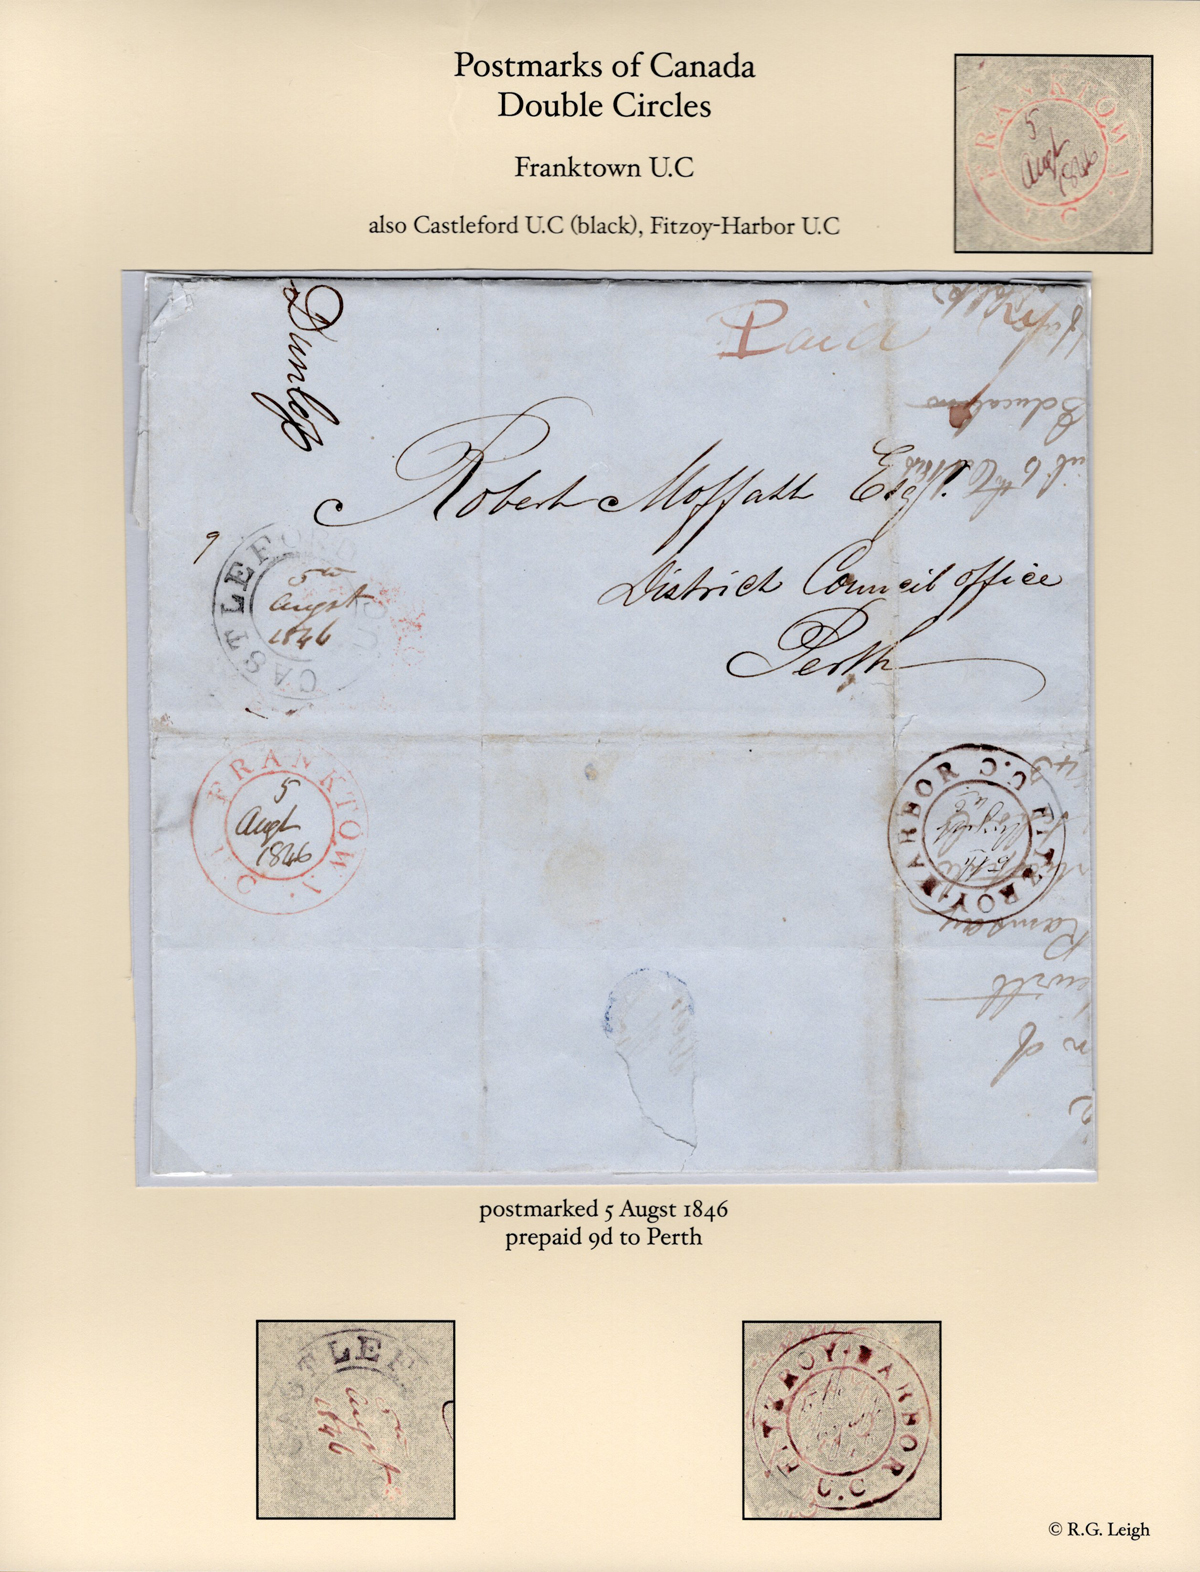 Postmarks of Canada
Double Circles
Franktown U.C
also Castleford U.C (black), Fitzoy-Harbor U.C
FRANKTOWN
U.C
5
Augt
1846
Dunlop
Paid
Education
Robert Moffatt Esqr.
District Council office
Perth
9
CASTLEFORD
U.C
5th
Augst
1846
FRANKTOWN
U.C
5
Augt
1846
FITZROY-HARBOR U.C.
5th
Ramsay
postmarked 5 Augst 1846
prepaid 9d to Perth
CASTLEF
Augst
1846
FITZROY-HARBOR U.C
5th
© R.G. Leigh